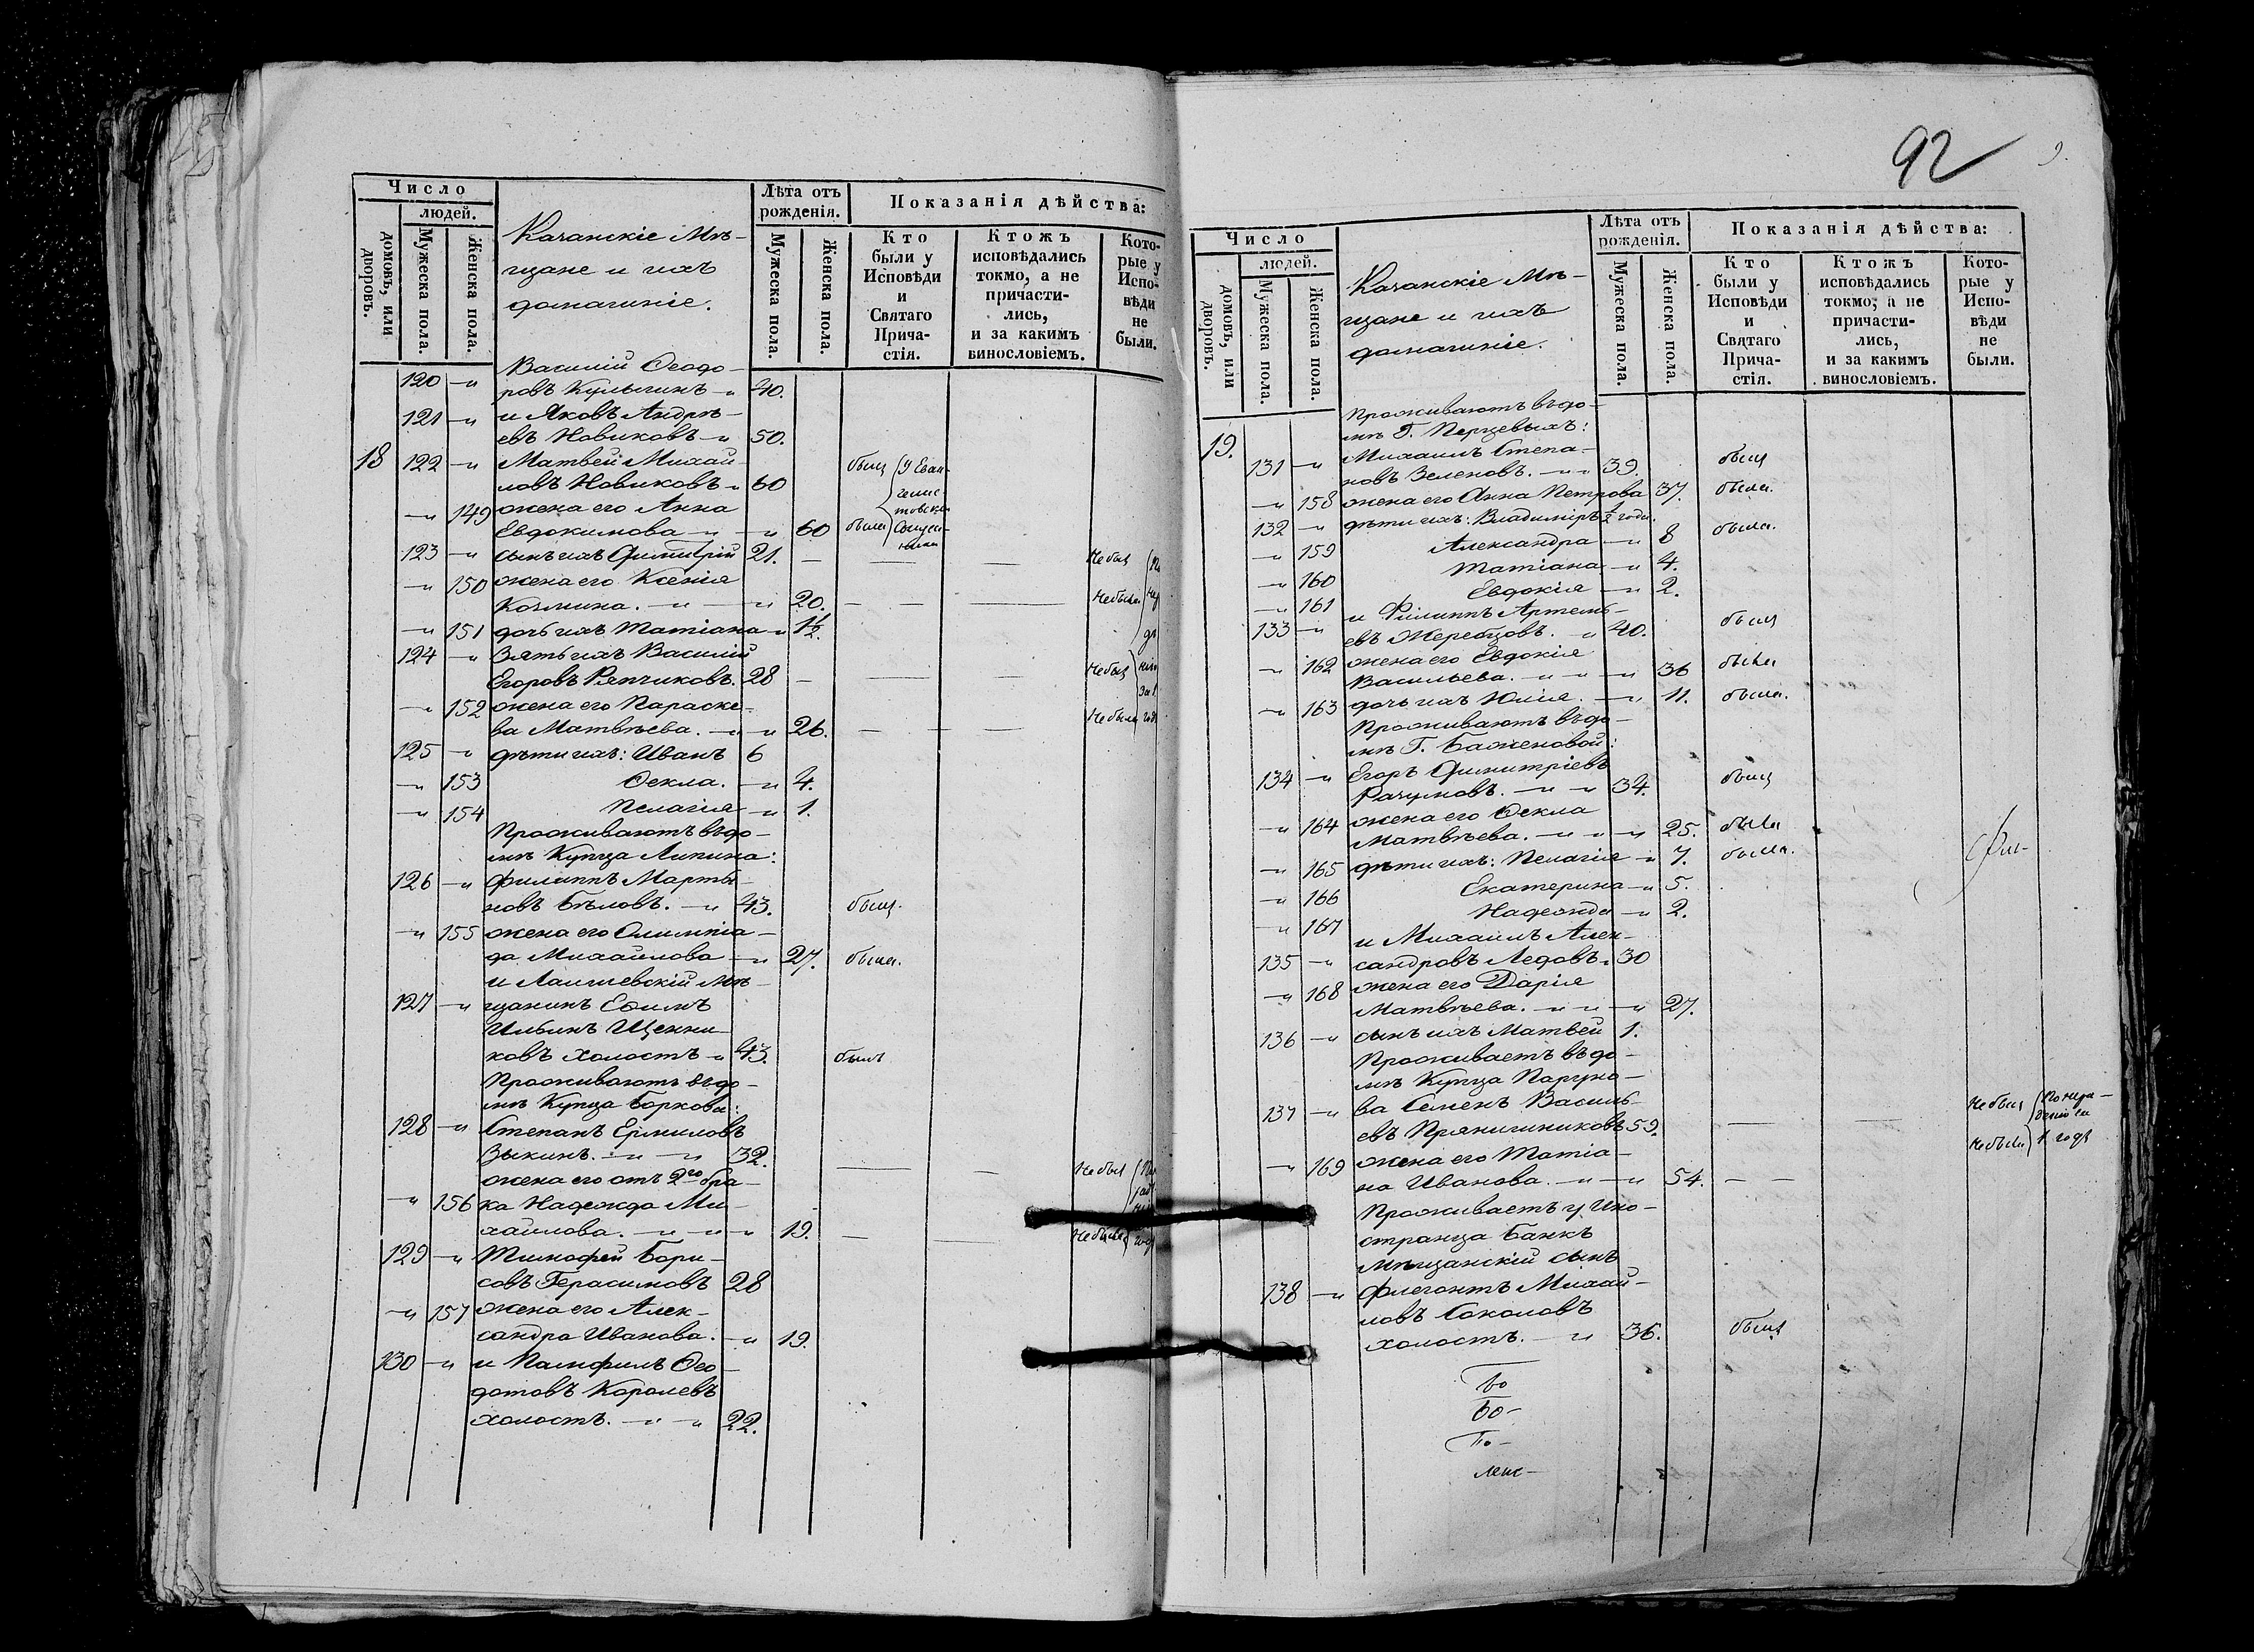 Число
людей.
домовъ, или дворовъ.
Мужеска пола.
Женска пола.
Казанскіе Мѣ-
щане и ихъ
домашніе.
Лѣта отъ рожденія.
Мужеска пола.
Женска пола.
Показанія дѣйства:
Кто были у Исповѣди и Святаго Прича-стія.
Ктожъ исповѣдались токмо, а не причасти-лись, и за какимъ винословіемъ.
Кото-рые у Испо-вѣди не были.
120 Василій Ѳеодо-
ровъ Кулыгинъ 40.
121 и Яковъ Андрѣ-
евъ Новиковъ 50.
18 122 Матвей Михай-
ловъ Новиковъ 60 былъ
149 жена его Анна
Евдокимова 60 была
123 сынъ ихъ Димитрій 21. Не былъ
150 жена его Ксенія
Козмина. 20. Не была
151 дочь ихъ Татіана 1½.
124 Зять ихъ Василій
Егоровъ Репчиковъ. 28 Не былъ
152 жена его Параске-
ва Матвѣева. 26. Не была
125 дѣти ихъ: Иванъ 6
153 Ѳекла. 4.
154 Пелагія 1.
Проживаютъ въ до-
мѣ Купца Липина:
126 Филиппъ Марты-
новъ Бѣловъ. 43. былъ.
155 жена его Олимпіа-
да Михайлова 27. была.
и Лаишевскій мѣ-
127 щанинъ Еѳимъ
Ильинъ Щенни-
ковъ холостъ 43. былъ
Проживаютъ въ до-
мѣ Купца Боркова:
128 Степанъ Ермиловъ
Зыкинъ. 32. Не былъ
жена его отъ 2го бра-
156 ка Надежда Ми-
хайлова. 19. Не была
129 Тимофей Бори-
совъ Герасимовъ 28
157 жена его Алек-
сандра Иванова. 19.
130 и Памфилъ Ѳео-
дотовъ Королевъ
холостъ. 22.
92
Число
людей.
домовъ, или дворовъ.
Мужеска пола.
Женска пола.
Казанскіе Мѣ-
щане и ихъ
домашніе.
Лѣта отъ рожденія.
Мужеска пола.
Женска пола.
Показанія дѣйства:
Кто были у Исповѣди и Святаго Прича-стія.
Ктожъ исповѣдались токмо, а не причасти-лись, и за какимъ винословіемъ.
Кото-рые у Испо-вѣди не были.
Проживаютъ въ до-
19. мѣ Г. Перцевыхъ:
131 Михаилъ Степа-
новъ Зеленовъ. 39. былъ
158 жена его Анна Петрова 37. была.
132 дѣти ихъ: Владиміръ ½ года.
159 Александра 8 была.
160 Татіана 4.
161 Евдокія 2.
133 и Филиппъ Артемь-
евъ Жеребцовъ. 40. былъ
162 жена его Евдокія
Васильева. 36 была
163 дочь ихъ Юлія. 11. была.
Проживаютъ въ до-
мѣ Г. Баженовой:
134 Егоръ Димитріевъ
Разумовъ. 34. былъ
164 жена его Ѳекла
Матвѣева. 25. была
165 дѣти ихъ: Пелагія 7. была.
166 Екатерина 5.
167 Надежда 2.
и Михаилъ Алек-
135 сандровъ Ледовъ. 30
168 жена его Дарія
Матвѣева. 27.
136 сынъ ихъ Матвей 1.
Проживаетъ въ до-
мѣ Купца Паруно-
137 ва Семенъ Василь-
евъ Пряничниковъ 59. Не былъ По нера-
дѣнію
169 жена его Татіа- Не была 1 годъ
на Иванова. 54.
Проживаетъ у Ино-
странца Банкъ
мѣщанскій сынъ
138 Флегонтъ Михай-
ловъ Соколовъ
холостъ. 36. былъ